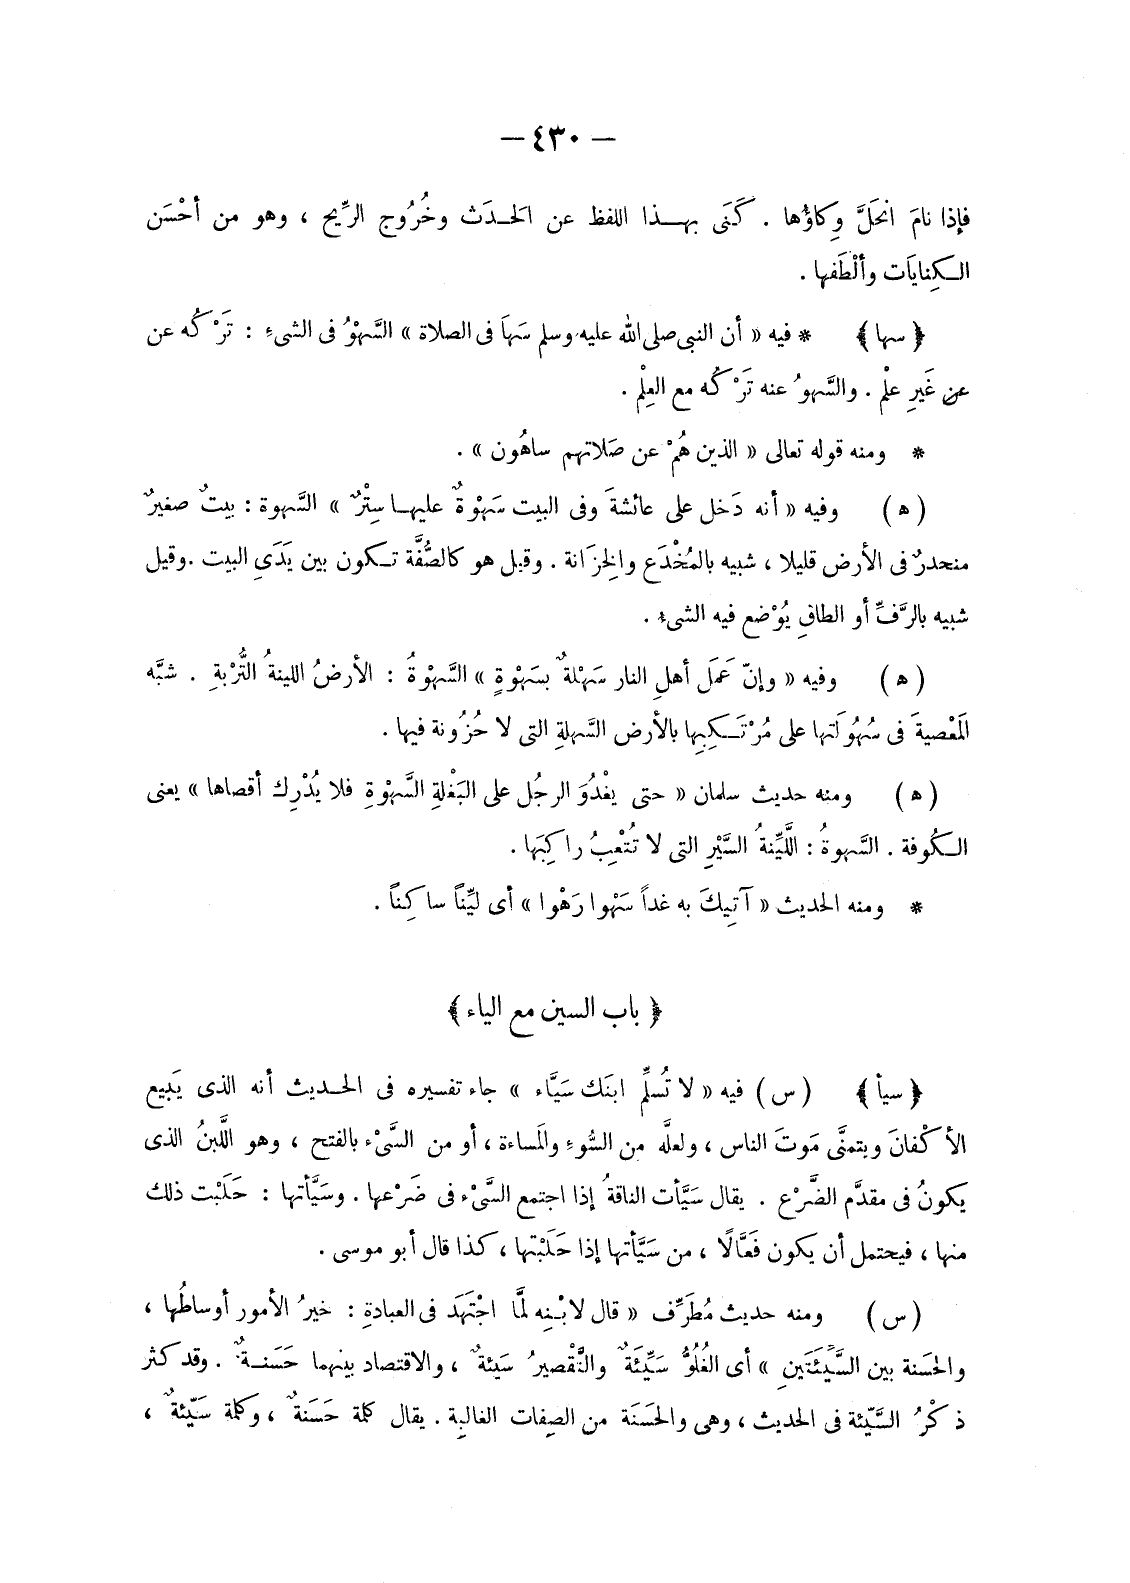 — ٤٣٠ —
فإذا نامَ انْحَلَّ وِكاؤُها . كَنَى بهـذا اللفظ عن الحَـدَث وخُرُوج الرِّيح ، وهو من أحْسَن
الـكِنايَات وألْطَفها .
﴿ سها ﴾ * فيه « أن النبى صلى الله عليه وسلم سَهَا فى الصلاة » السَّهْوُ فى الشىءِ : تَرْكُه عن
عن غَيرِ عِلْم . والسَّهوُ عنه تَرْكُه مع العِلْم .
* ومنه قوله تعالى « الذين هُمْ عن صَلاتهم ساهُون » .
( ه ) وفيه « أنه دَخل على عائشةَ وفى البيت سَهْوَةٌ عليهـا سِتْرٌ » السَّهوة : بيتٌ صغيرٌ
منحدرٌ فى الأرض قليلا ، شبيه بالمُخْدَع والخِزَانة . وقيل هو كالصُّفَّة تـكون بين يَدَىِ البيت . وقيل
شبيه بالرَّفِّ أو الطاقِ يُوْضع فيه الشىء .
( ه ) وفيه « وإنّ عَمَل أهلِ النار سَهْلةٌ بسَهْوةٍ » السَّهْوةُ : الأرضُ اللينةُ التُّرْبةِ . شبَّه
المَعْصيةَ فى سُهُولَتها على مُرْتَـكِبِها بالأرض السَّهلةِ التى لا حُزُونة فيها .
( ه ) ومنه حديث سلمان « حتى يغْدُوَ الرجُل على البَغْلةِ السَّهْوةِ فلا يُدْرِك أقصاها » يعنى
الـكُوفة . السَّهوةُ : اللَّيِّنةُ السَّيْرِ التى لا تُتْعِبُ راكِبَها .
* ومنه الحديث « آتِيكَ به غداً سَهْوا رَهْوا » أى ليِّناً ساكِناً .
﴿ باب السين مع الياء ﴾
﴿ سيأ ﴾ ( س ) فيه « لا تُسلِّمِ ابنَك سَيَّاء » جاء تفسيره فى الحـديث أنه الذى يَبيع
الأكْفانَ ويتمنَّى مَوتَ الناس ، ولعلَّه من السُّوءِ والمَساءة ، أو من السَّىْء بالفتح ، وهو اللَّبنُ الذى
يكونُ فى مقدَّم الضَّرْع . يقال سَيَّأت الناقةُ إذا اجتمع السَّىْء فى ضَرْعها . وسَيَّأتها : حَلَبْت ذلك
منها ، فيحتمل أن يكون فَعَّالًا ، من سَيَّأتها إذا حَلَبْتها ، كذا قال أبو موسى .
( س ) ومنه حديث مُطَرِّف « قال لابْـنِه لمَّا اجْتَهَد فى العبادةِ : خيرُ الأمور أوساطُها ،
والحَسَنة بين السَّيِّئَتَينِ » أى الغُلُوُّ سَيِّئَةٌ والتَّقْصيرُ سَيئةٌ ، والاقتصاد بينهما حَسَنـةٌ . وقد كثر
ذِكْرُ السَّيّئة فى الحديث ، وهى والحَسَنَة من الصِفات الغالِبة . يقال كلمة حَسَنةٌ ، وكلمة سَيّئةٌ ،